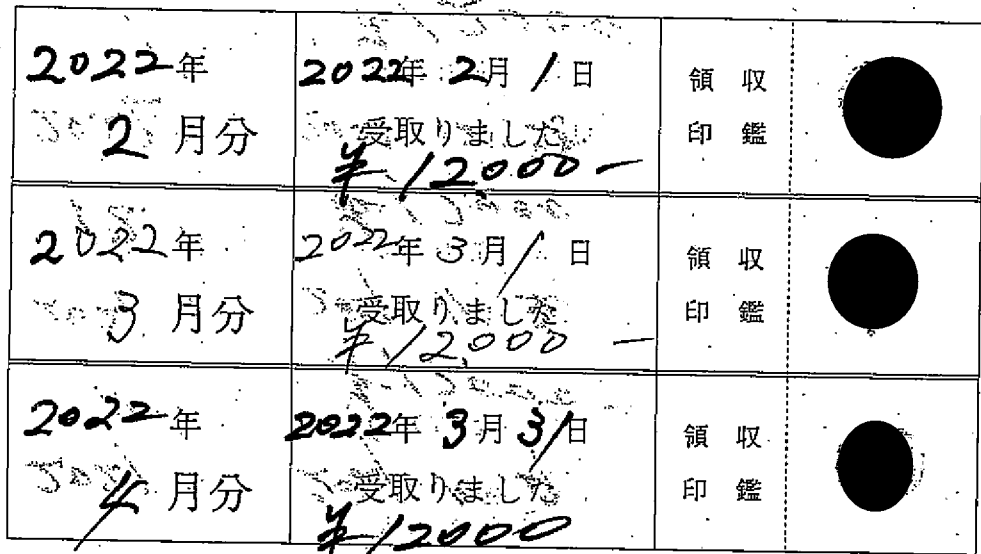 2022年
2月分
2022年2月1日
受取りました
¥12,000-
領収
印鑑
2022年
3月分
2022年3月1日
受取りました
¥12,000-
領収
印鑑
2022年
4月分
2022年3月31日
受取りました
¥12000
領収
印鑑